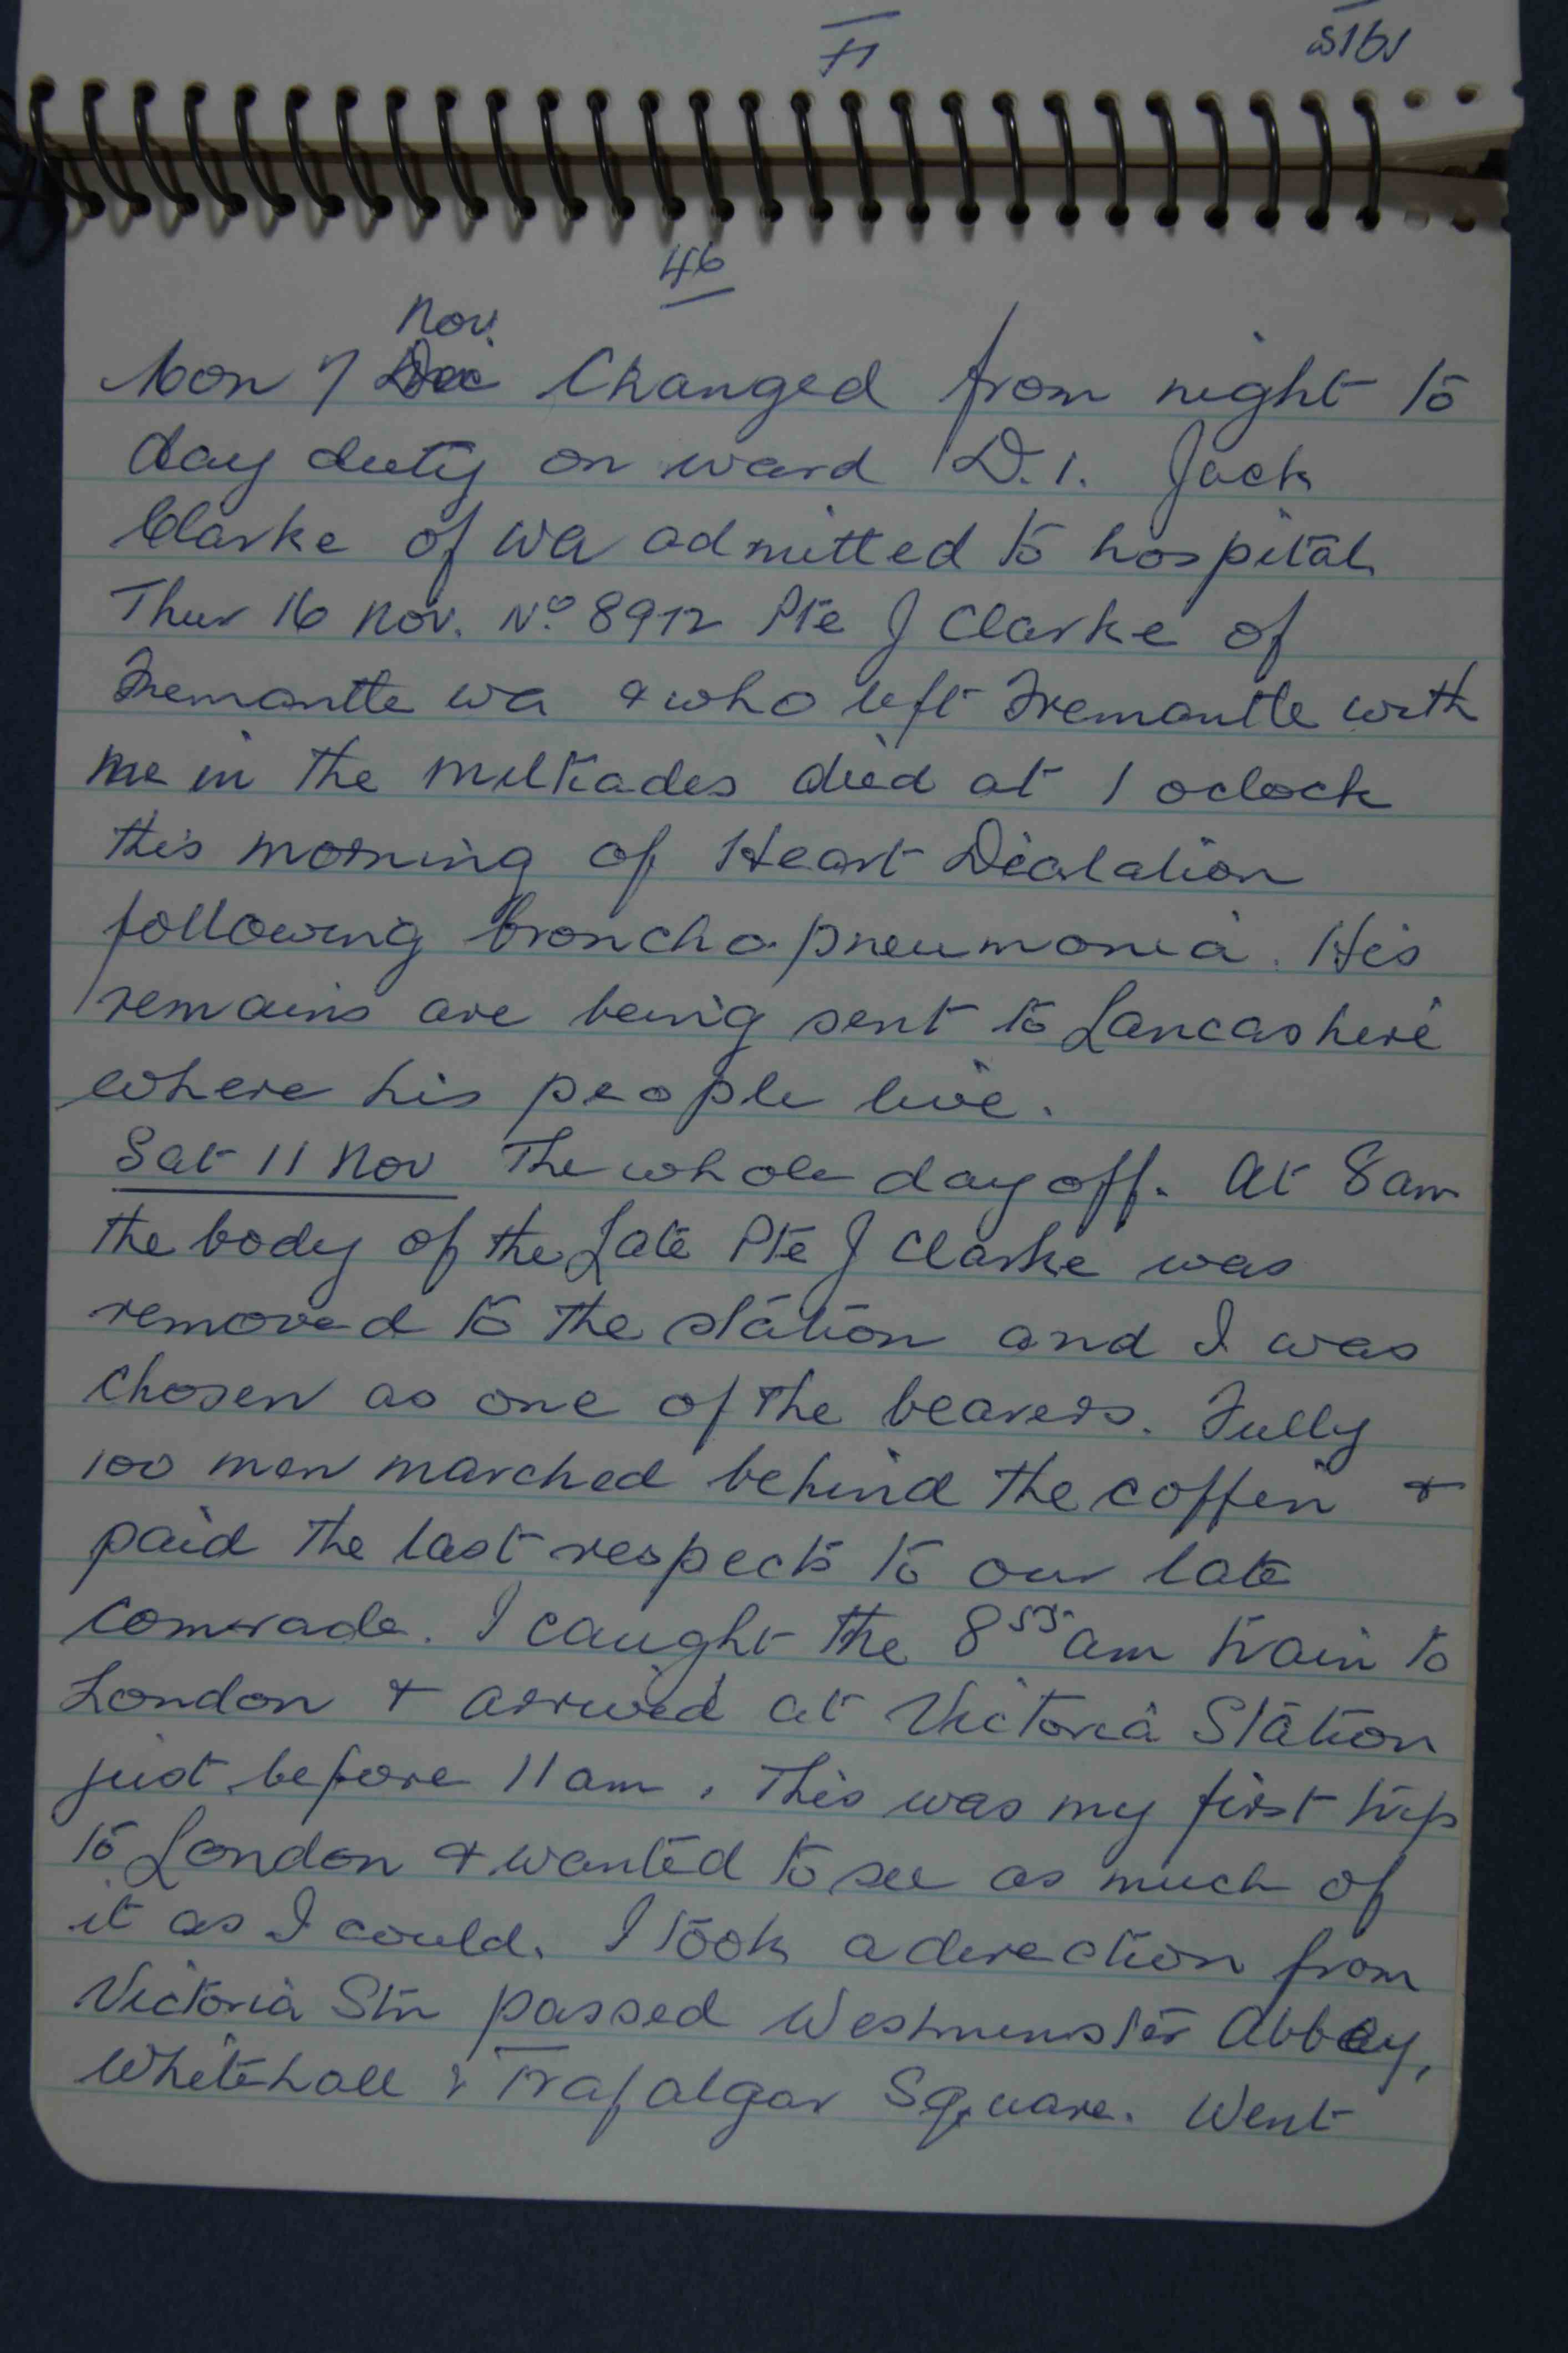 46
Nov.
Mon 7 Dec Changed from night to
day duty on ward D.1. Jack
Clarke of WA admitted to hospital
Thur 16 Nov. No 8912 Pte J Clarke of
Fremantle WA & who left Fremantle with
me in the Miltiades died at 1 oclock
this morning of Heart Dialation
following broncho pneumonia. His
remains are being sent to Lancashire
where his people live.
Sat 11 Nov The whole day off. At 8 am
the body of the Late Pte J Clarke was
removed to the station and I was
chosen as one of the bearers. Fully
100 men marched behind the coffin &
paid the last respects to our late
comrade. I caught the 8 55 am train to
London & arrived at Victoria Station
just before 11 am. This was my first trip
to London & wanted to see as much of
it as I could. I took a direction from
Victoria Stn passed Westminster Abbey,
Whitehall & Trafalgar Square. Went